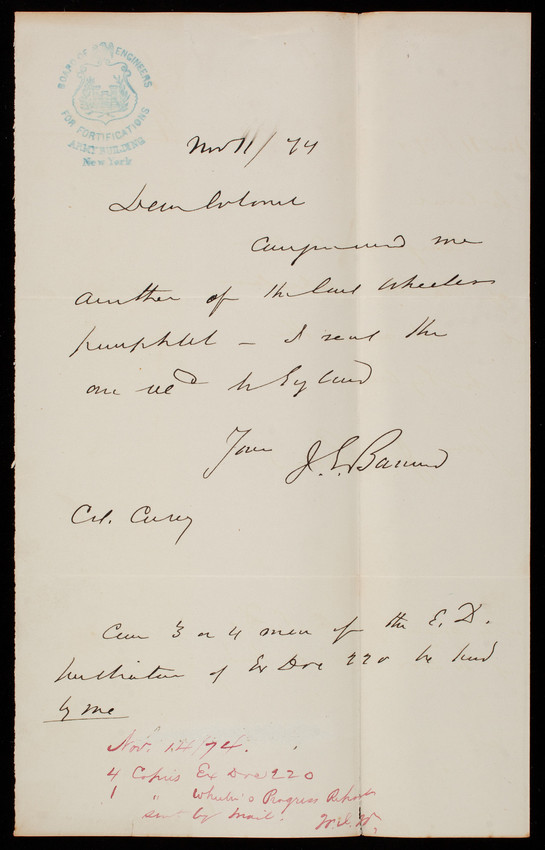 BOARD OF ENGINEERS
FOR FORTIFICATIONS
ARMY BUILDING
New York
Nov 11/74
Dear Colonel
Can you send me
another of the Lieut Wheelers
pamphlet – I sent the
one recd to England
Yours J. G. Barnard
Col. Casey
Can 3 or 4 more of the E. D.
publication of Ex Doc 220 be had
by me
Nov. 14/74.
4 Copies Ex Doc 220
1 " Wheeler's Progress Report
sent by mail.